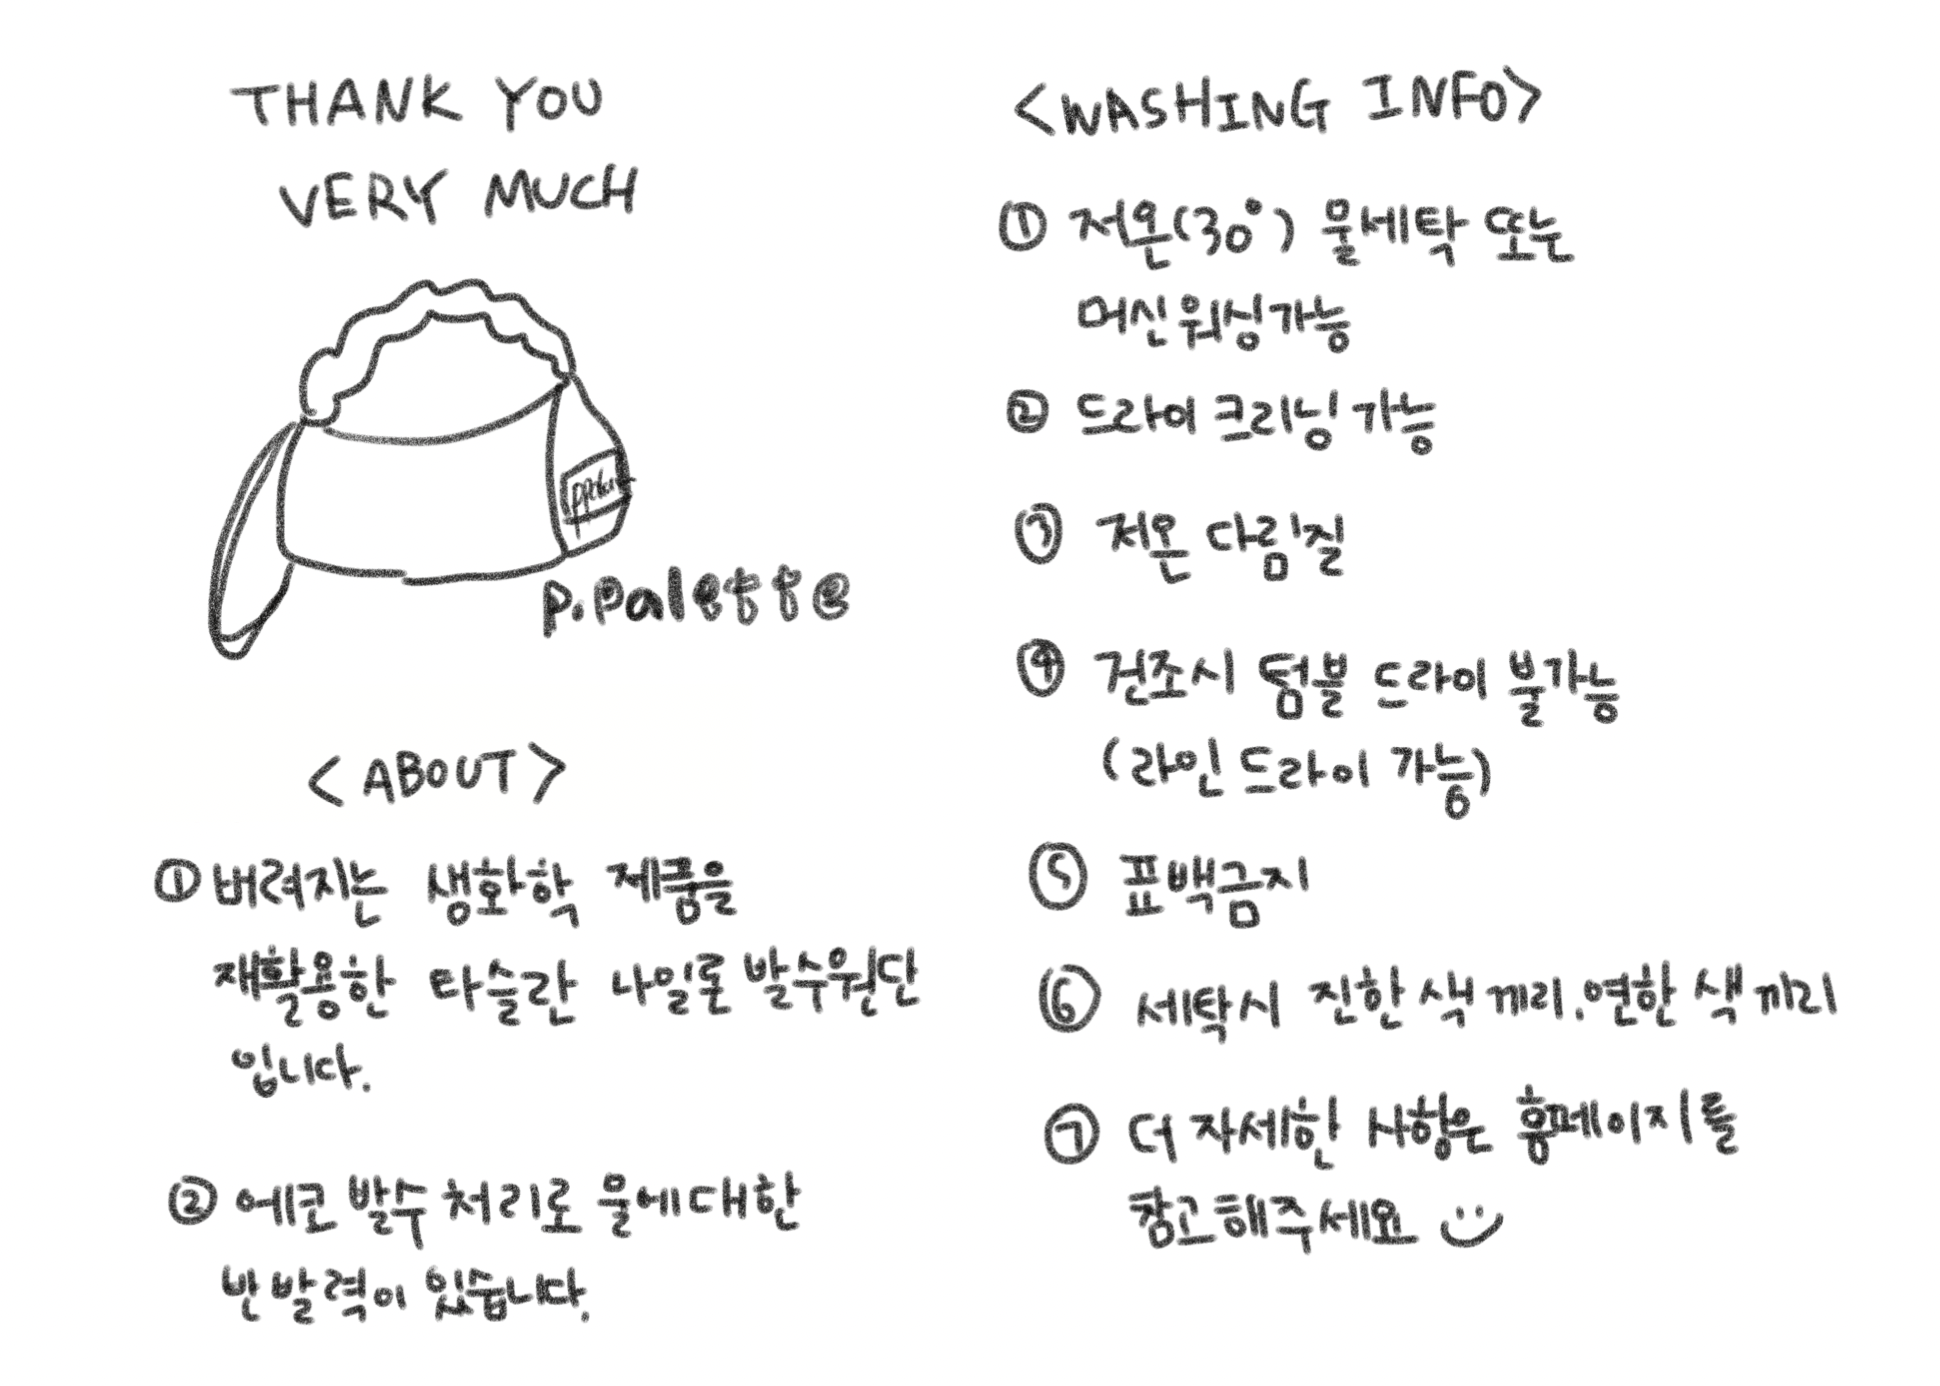 THANK YOU
VERY MUCH
p.palette
<ABOUT>
① 버려지는 생화학 제품을
재활용한 타슬란 나일론 발수원단
입니다.
② 에코 발수 처리로 물에 대한
반발력이 있습니다.
<WASHING INFO>
① 저온(30°) 물세탁 또는
머신워싱가능
② 드라이 크리닝 가능
③ 저온 다림질
④ 건조시 텀블 드라이 불가능
(라인 드라이 가능)
⑤ 표백금지
⑥ 세탁시 진한 색 끼리. 연한 색 끼리
⑦ 더 자세한 사항은 홈페이지를
참고해주세요